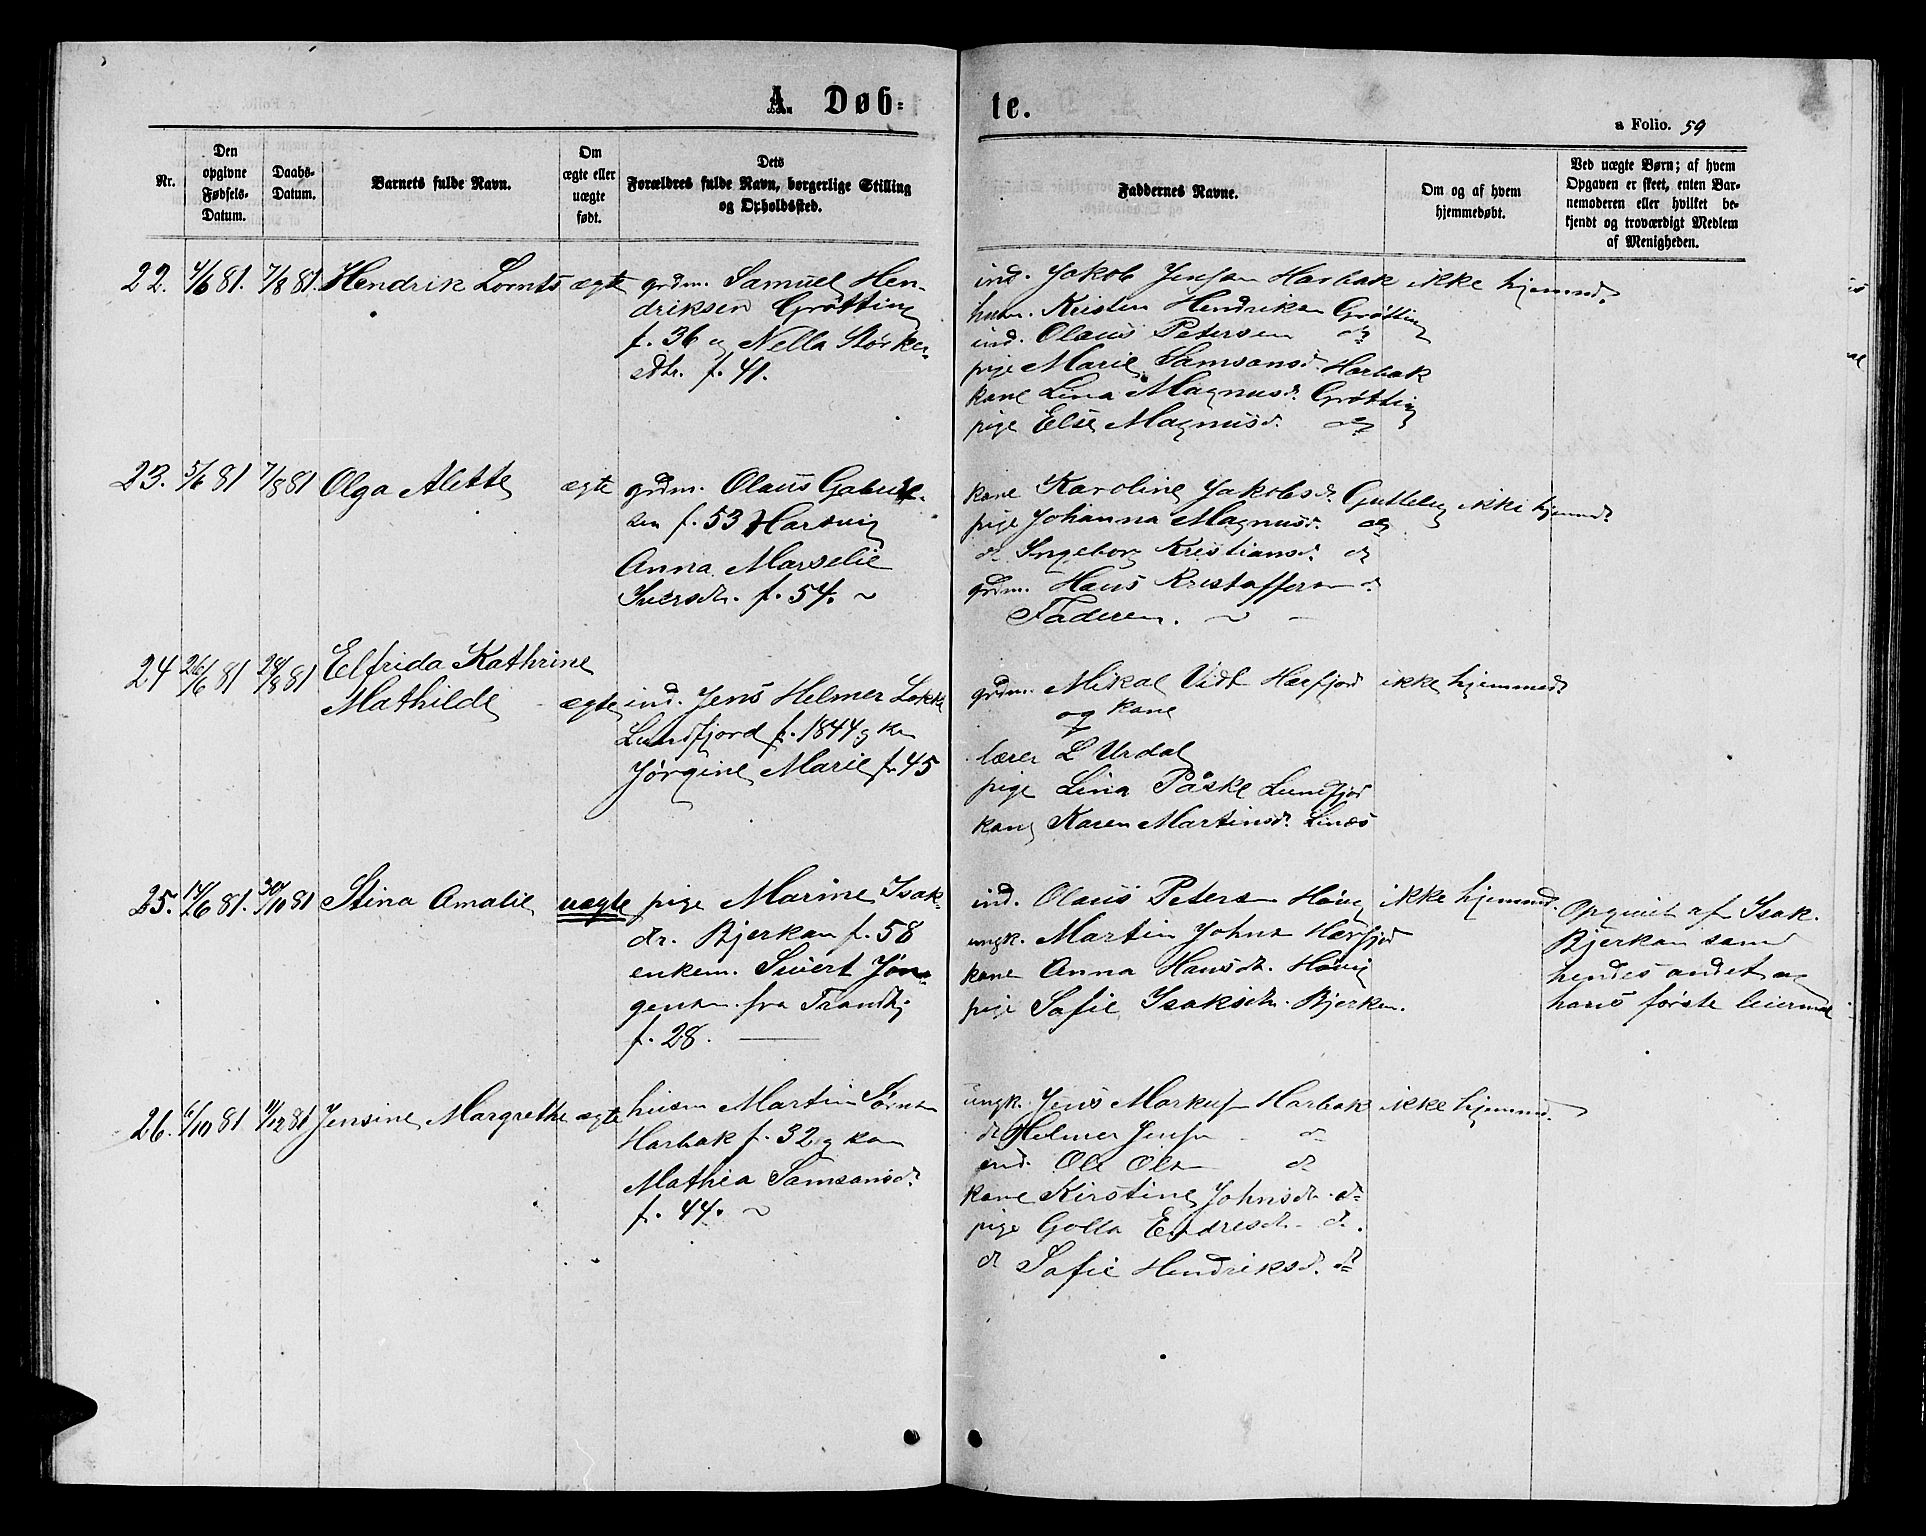 A. Døb-
te.
a Folio. 59
Nr.
Den opgivne Fødsels-Datum.
Daabs-Datum.
Barnets fulde Navn.
Om ægte eller uægte født.
Dets Forældres fulde Navn, borgerlige Stilling og Opholdssted.
Faddernes Navne.
Om og af hvem hjemmedøbt.
Ved uægte Børn; af hvem Opgaven er skeet, enten Barnemoderen eller hvilket bekjendt og troværdigt Medlem af Menigheden.
22. 4/6 81. 7/8 81. Hendrik Lornts ægte grdm. Samuel Hen-
driksen Grøtting
f. 36 og Nella Størker-
sdtr. f. 41.
ind. Jakob Jensen Harbak ikke hjemmd.
husm. Kristen Hendriksen Grøtting
ind. Olaus Petersen do
pige Marie Samsonsd. Harbak
kone Lina Magnusd. Grøtting
pige Else Magnusd. do
23. 5/6 81 7/8 81 Olga Alette ægte grdm. Olaus Gabriel-
sen f. 53 Harsvig
Anna Marselie
Siversdtr. f. 54. ~
kone Karoline Jakobsd. Gutteby ikke hjemmd.
pige Johanna Magnusd. do
do Ingeborg Kristiansd. do
grdm. Hans Kristoffersen do
Faderen. ~
24 26/6 81 28/8 81 Elfrida Kathrine
Mathilde ægte ind. Jens Helmer Løkke
Lundfjord f. 1844 og k.
Jørgine Marie f. 45
grdm. Mikal Vidt Hærfjord ikke hjemmed
og kone
lærer L Urdal
pige Lina Påske Lundfjor
kone Karen Martinsd. Linæs
25. 14/6 81. 30/10 81 Stina Amalie uægte pige Marine Isak-
dr. Bjerkan f. 58
enkem. Sivert Jør-
gensen fra Trondhj
f. 28.
ind. Olaus Petersen Høvig ikke hjemmd.
ungk. Martin Johns. Hærfjor
kone Anna Hansdtr. Høvig
pige Sofie Isaksdtr. Bjerkan.
Opgivet af Isak
Bjerkan samt
hendes andet og
hans første leiermaal
26. 6/10 81 11/12 81 Jensine Margrethe ægte husm Martin Sørensen
Harbak f. 32 og kone
Mathea Samsonsd.
f. 44. ~
ungk. Jens Markusen Harbak ikke hjemmd.
do Helmer Jensen do
ind. Ole Olsen do
kone Kirstine Johnsdtr. do
pige Golla Endresdtr. do.
do Sofie Hendriksd. do